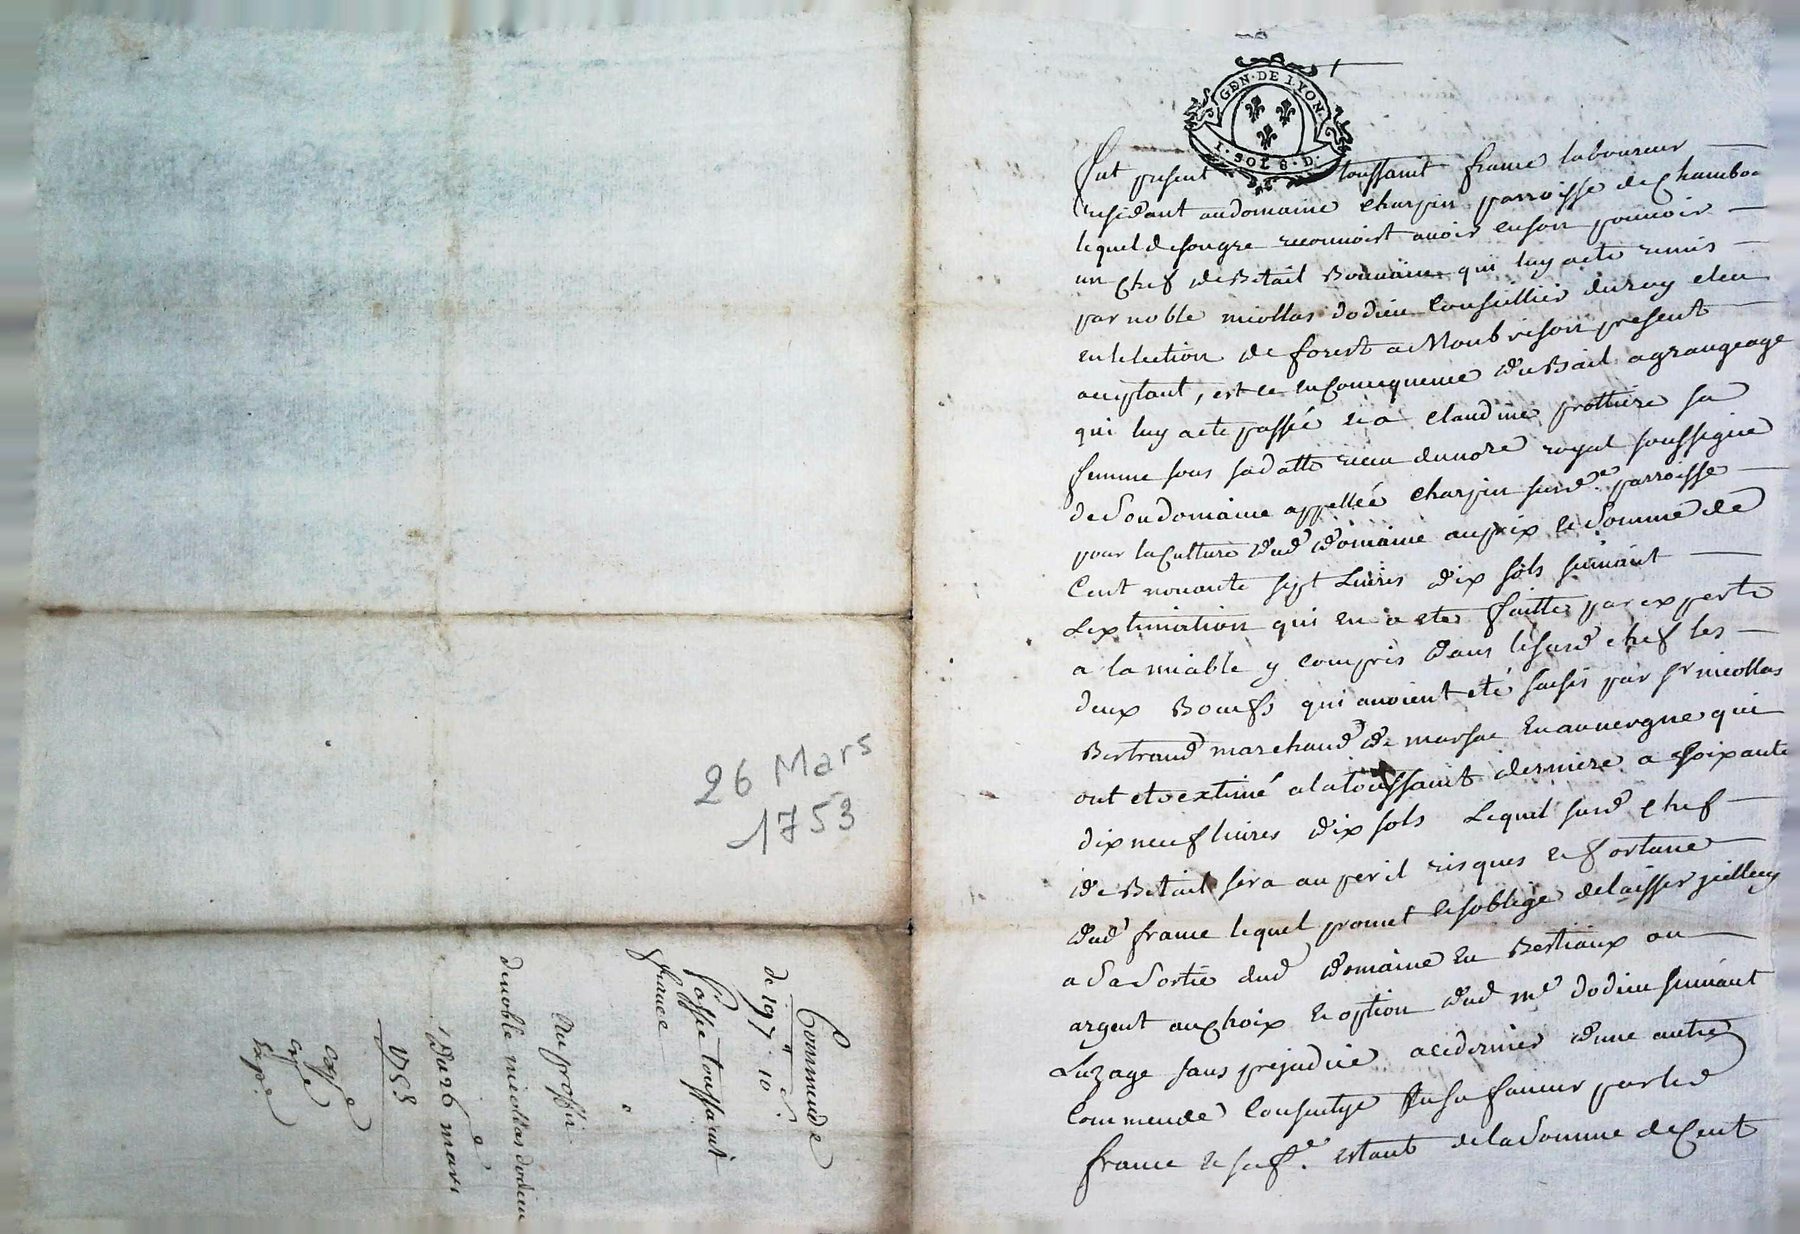 GEN · DE LYON ·
1 · SOL 8 · D ·
Fut present toussaint france laboureur
residant au domaine Charpin parroisse de Chambo
lequel de son gre reconnoist avoir en son pouvoir
un Chef de Betail Bouvaine qui luy a ete remis
par noble nicollas dodieu Conseillier du roy eleu
en lelection de forest a Monbrison present
acceptant, est ce en Consequence du Bail a grangeage
qui luy a ete passée et a Claudine prottiere sa
femme sous sa datte receu du nore royal soussigne
de Son domaine appellée Charpin surd.e parroisse
pour la Culture dud domaine au prix et Somme de
Cent nonante sept Livres dix sols suivant
Lextimation qui en a ete faitte par experts
a lamiable y compris dans lesusd chef les
deux Boeufs qui avoient eté saisis par sr nicollas
Bertrand marchand de marsac En auvergne qui
ont ete extimé a la toussaint derniere a soixante
dix neuf livres dix sols Lequel susd chef
de Betail sera au peril risques et fortune
dud france lequel promet et soblige de laisser
a Sa Sortie dud domaine En Bestiaux ou
argent au Choix et option dud mr dodieu suivant
Luzage sans prejudice a ce dernier dune autre
Commende Consentye En sa faveur par led
france et sa f.e estant de la Somme de Cent
26 Mars
1753
Commende
de 197 # 10 s.
Passée toussaint
france
Au proffit
de noble nicollas dodieu
Du 26e mars
1753